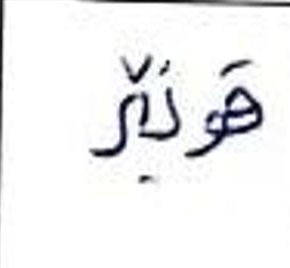 هونێر